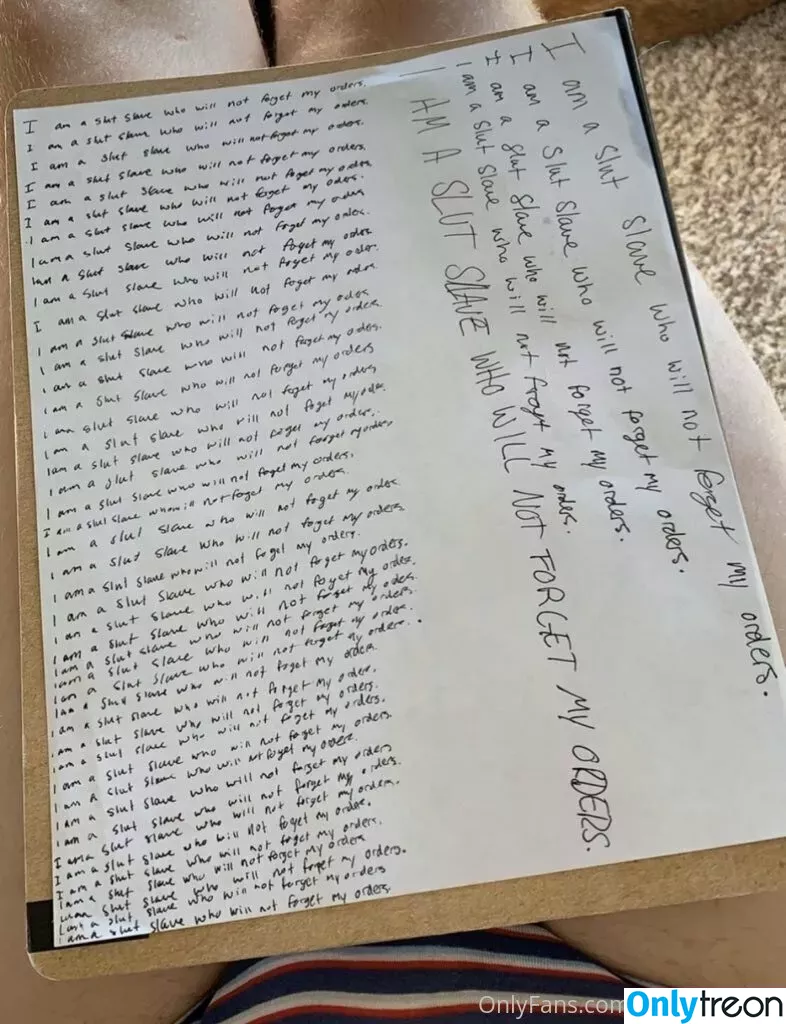 I am a slut slave who will not forget my orders.
I am a slut slave who will not forget my orders.
I am a slut slave who will not forget my orders.
I am a slut slave who will not forget my orders.
I am a slut slave who will not forget my orders.
I am a slut slave who will not forget my orders.
I am a slut slave who will not forget my orders
I am a slut slave who will not forget my orders.
I am a slut slave who will not forget my orders
I am a slut slave who will not forget my orders.
I am a slut slave who will not forget my orders.
I am a slut slave who will not forget my orders
I am a slut slave who will not forget my orders.
I am a slut slave who will not forget my orders.
I am a slut slave who will not forget my orders
I am a slut slave who will not forget my orders
I am a slut slave who will not forget my orders.
I am a slut slave who will not forget my orders.
I am a slut slave who will not forget my orders
I am a slut slave who will not forget my orders.
I am a slut slave who will not forget my orders.
I am a slut slave who will not forget my orders
I am a slut slave who will not forget my orders.
I am a slut slave who will not forget my orders.
I am a slut slave who will not forget my orders.
I am a slut slave who will not forget my orders.
I am a slut slave who will not forget my orders.
I am a slut slave who will not forget my orders.
I am a slut slave who will not forget my orders.
I am a slut slave who will not forget my orders.
I am a slut slave who will not forget my orders.
I am a slut slave who will not forget my orders.
I am a slut slave who will not forget my orders.
I am a slut slave who will not forget my orders.
I am a slut slave who will not forget my orders.
I am a slut slave who will not forget my orders.
I am a slut slave who will not forget my orders
I am a slut slave who will not forget my orders.
I am a slut slave who will not forget my orders.
I am a slut slave who will not forget my orders.
I am a slut slave who will not forget my orders.
I am a slut slave who will not forget my orders
I am a slut slave who will not forget my orders.
I am a slut slave who will not forget my orders
I am a slut slave who will not forget my orders.
I am a slut slave who will not forget my orders.
I am a slut slave who will not forget my orders.
I am a slut slave who will not forget my orders.
I am a slut slave who will not forget my orders.
I am a slut slave who will not forget my orders.
I AM A SLUT SLAVE WHO WILL NOT FORGET MY ORDERS.
OnlyFans.com
Onlytreon